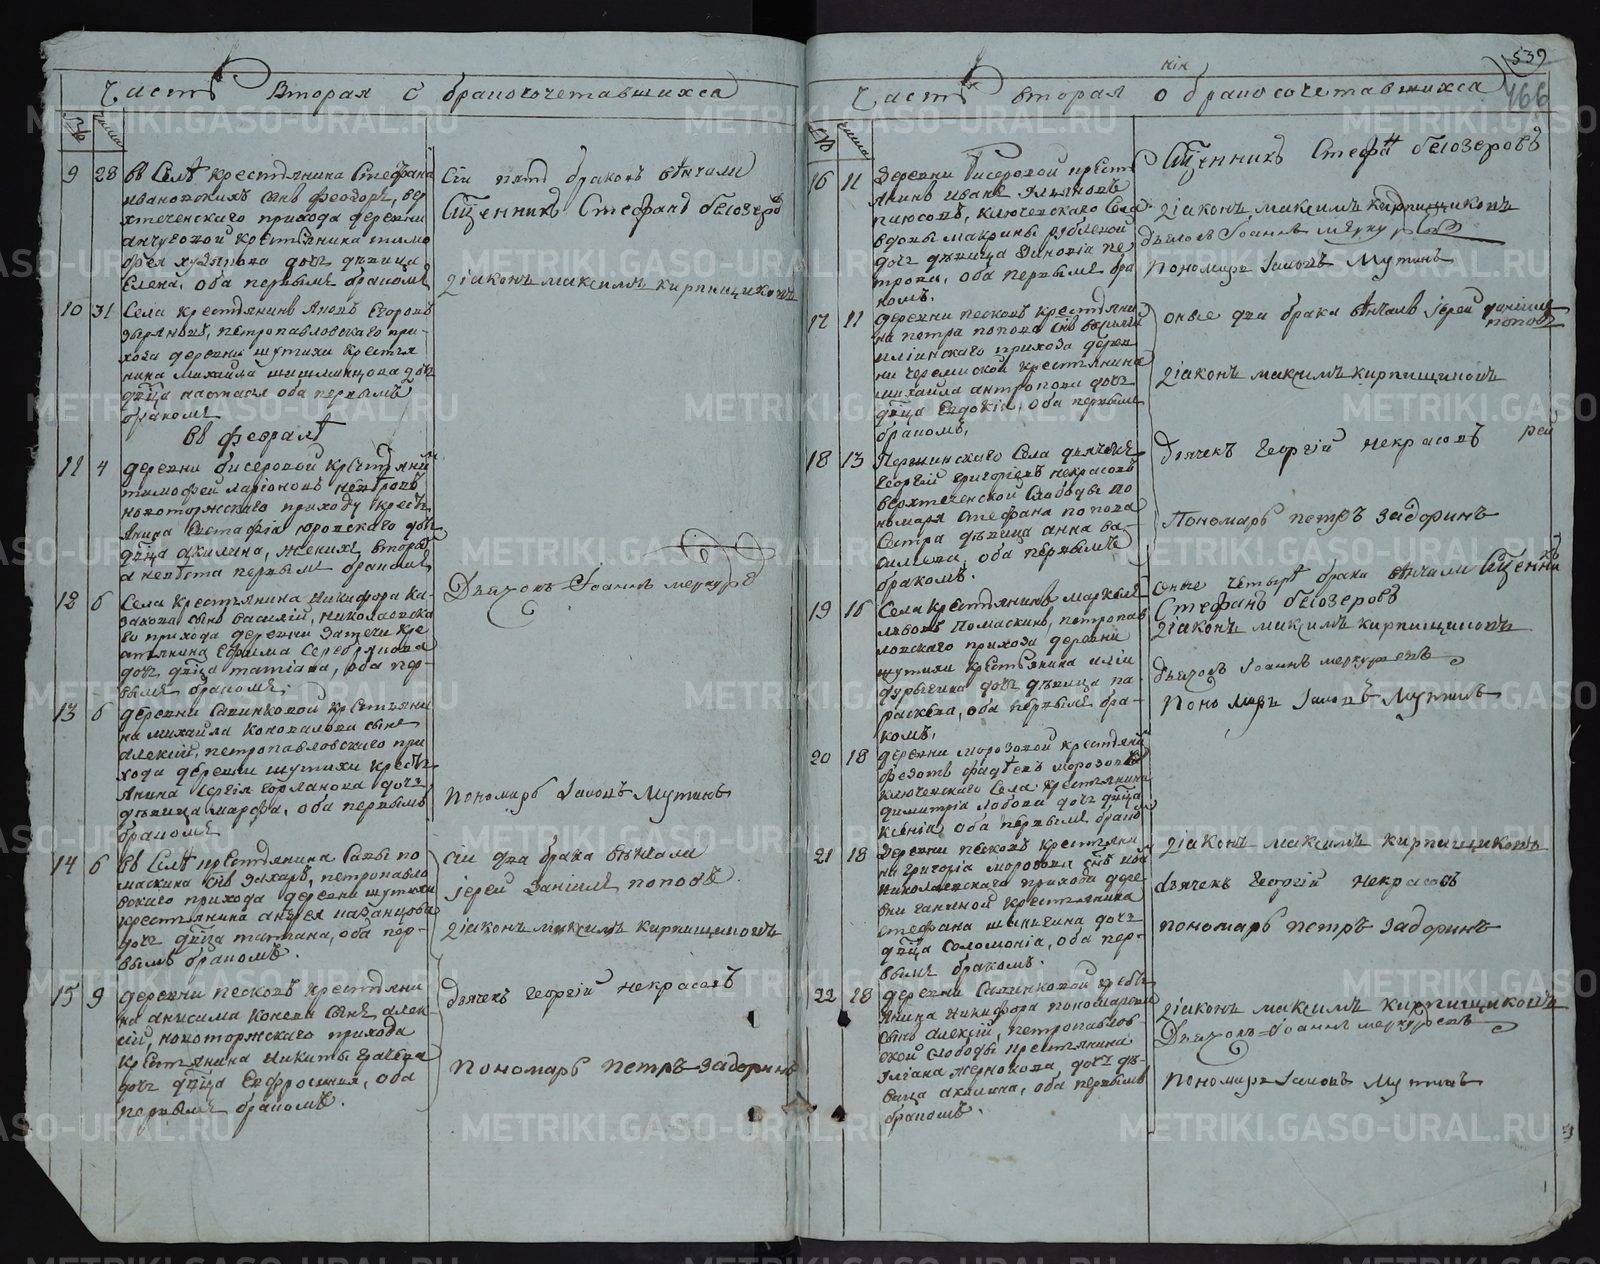 Часть Вторая о бракосочетавшихся
9 28 в Селѣ крестьянина Стефана
ивановыхъ сынъ Феодоръ, вер
хтеченскаго прихода деревни
анчуговой крестьянина тимо
фея худякова дочь дѣвица
Елена, оба первымъ бракомъ
Сіи пять браковъ вѣнчали
Сщенникъ Стефанъ бѣлозеровъ
діаконъ максимъ кирпищиковъ
10 31 Села крестьянинъ Егоровъ
зыряновъ, петропавловскаго при-
хода деревни шутихи крестья
нина михайла шишминцова дочь
дѣвца настасья оба первымъ
бракомъ
въ февралѣ
11 4 деревни бисеровой крестьяни
тимофей ларіоновъ
новоторжскаго приходу крест
янина Евстафіа юровскаго дочь
дѣвца акилина, женихъ вторымъ
а невѣста первымъ бракомъ
12 6 Села крестьянина Никифора ка-
закова сынъ василій, николаевска
го прихода деревни Затечи кре
стьянина Ефима Серебрякова
дочь дѣвца татіана, оба пер-
вымъ бракомъ.
Дьячокъ Іоаннъ меркурьевъ
13 6 деревни Савинковой крестьяни
на михайла Коновалова сынъ
алексій, петропавловскаго при
хода деревни шутихи крестъ
янина Сергія горланова дочь
дѣвица марфа, оба первымъ
бракомъ
пономарь Іаковъ Мутинъ
14 6 въ Селѣ крестьянина Савы по
маскина снъ Захаръ, петропавло
вскаго прихода деревни шутихи
крестьянина андрея казанцова
дочь дѣвца татиана, оба пер-
вымъ бракомъ.
сіи два брака вѣнчали
іерей Даніилъ поповъ
діаконъ максимъ кирпищиковъ
15 9 деревни песковъ крестьяни
на анисима Конева сынъ алек-
сій, новоторжскаго прихода
крестьянина Никиты Грачева
дочь дѣвца Евфросинія, оба
первымъ бракомъ.
дьячекъ Георгій некрасовъ
пономарь петръ Задоринъ
539
166
Часть вторая о бракосочетавшихся
16 11 деревни бисеровой крестъ
янинъ иванъ
ключевскаго Села
вдовы макрины рублевой
дочь дѣвица Зиновіа пе-
трова, оба первымъ бра
комъ.
Сщенникъ Стефанъ бѣлозеровъ
діаконъ максимъ кирпищиковъ
дьячокъ Іоаннъ меркурьевъ
пономарь Іаковъ Мутинъ
17 11 деревни песковъ крестьяни
на петра попова снъ
прихода дерев
ни черемиской крестьянина
михайла антропова дочь
дѣвца Евдокіа, оба первымъ
бракомъ.
оные два брака вѣнчалъ іерей даніилъ
поповъ
діаконъ максимъ кирпищиковъ
18 13 Першинскаго Села дьячекъ
Георгій григорьевъ некрасовъ
верхтеченской Слободы по
номаря Стефана попова
Сестра дѣвица анна ва-
сильева, оба первымъ
бракомъ.
дьячекъ Георгій некрасовъ
Пономарь петръ Задоринъ
19 16 Села крестьянинъ маркелъ
львовъ Помаскинъ, петропав
ловскаго прихода деревни
шутихи крестьянина иліи
фурыгина дочь дѣвица па-
раскева, оба первымъ бра-
комъ.
оные четыре брака вѣнчали Сщенни
Стефанъ бѣлозеровъ
діаконъ максимъ кирпищиковъ
дьячокъ Іоаннъ меркурьевъ
пономарь Іаковъ Мутинъ
20 18 деревни морозовой крестьяни
федотъ морозовъ
ключевскаго Села крестьянина
димитріа лобова дочь дѣвца
Ксеніа, оба первымъ брако
21 18 деревни песковъ крестьяни
на григоріа морозова снъ
николаевскаго прихода дере
вни ганиной крестьянина
Стефана шаньгина дочь
дѣвца Соломоніа, оба пер-
вымъ бракомъ.
діаконъ максимъ кирпищиковъ
дьячекъ Георгій некрасовъ
пономарь петръ Задоринъ
22 18 деревни Савинковой кресть
янина Никифора пономарева
сынъ алексій, петропавлов-
ской слободы крестьянина
дочь дѣ-
вица акилина, оба первымъ
бракомъ.
діаконъ максимъ кирпищиковъ
Дьячокъ Іоаннъ меркурьевъ
пономарь Іаковъ Мутинъ
METRIKI.GASO-URAL.RU